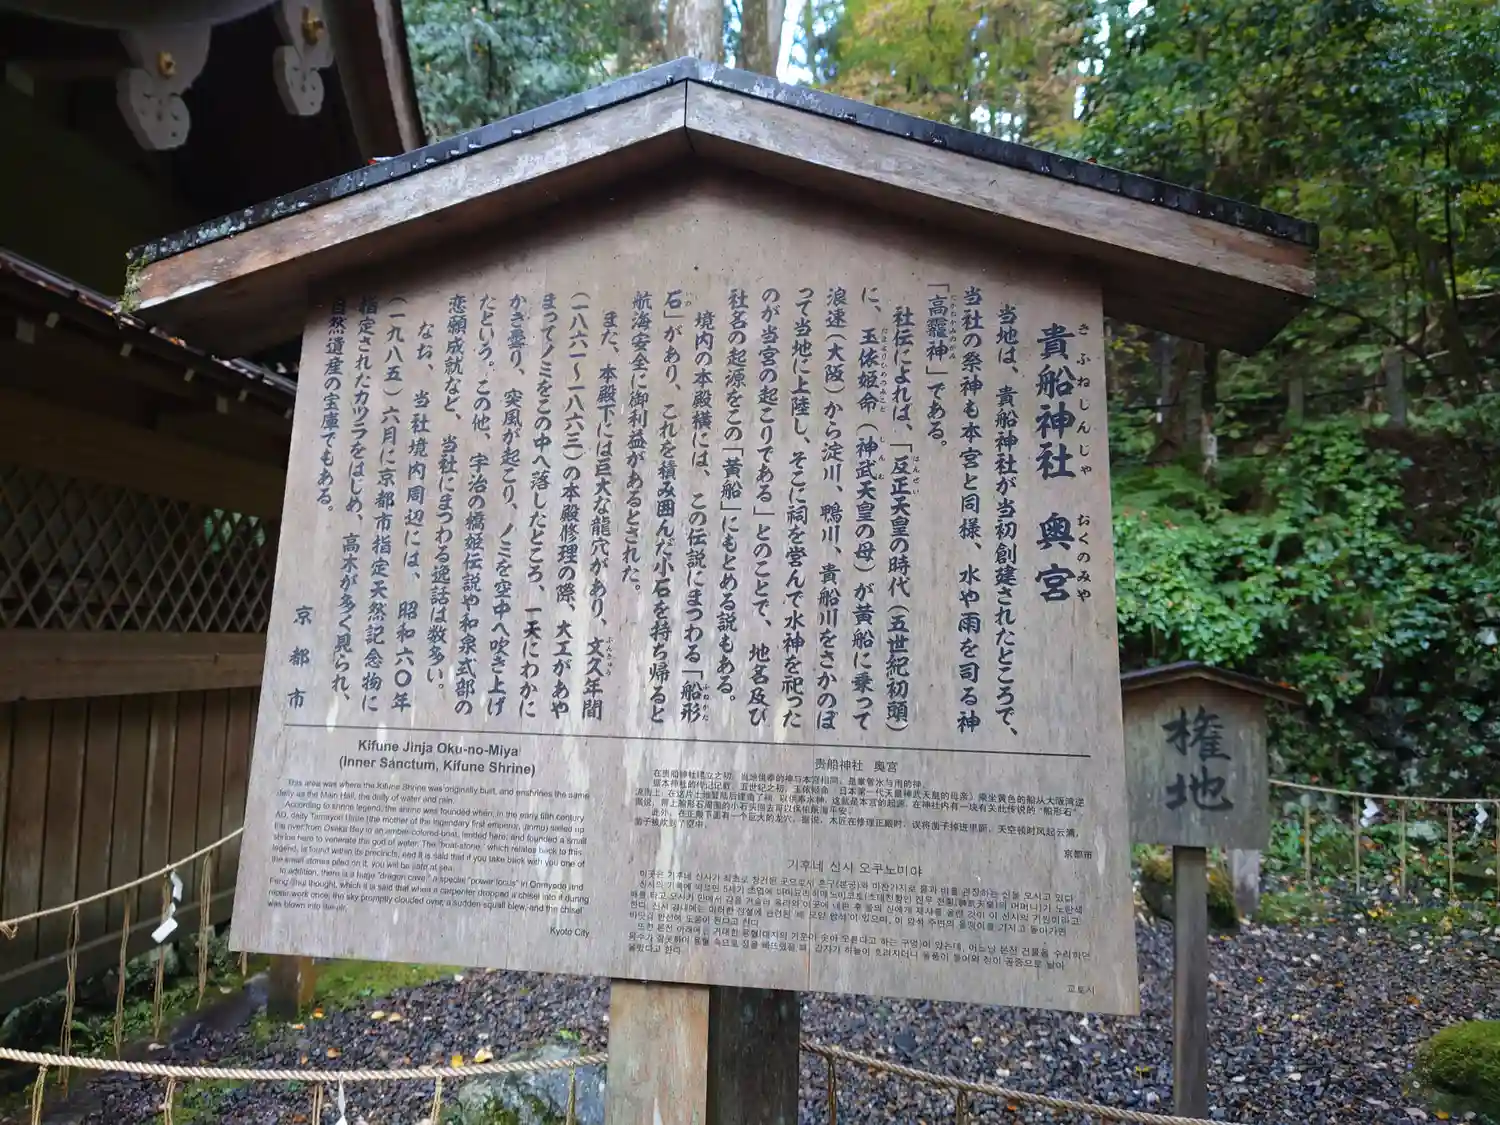 貴船神社 奥宮
きふねじんじゃ おくのみや
当地は、貴船神社が当初創建されたところで、
当社の祭神も本宮と同様、水や雨を司る神
「高龗神」である。
たかおかみのかみ
社伝によれば、「反正天皇の時代(五世紀初頭)
はんぜい
に、玉依姫命(神武天皇の母)が黄船に乗って
たまよりひめのみこと じんむ
浪速(大阪)から淀川、鴨川、貴船川をさかのぼ
って当地に上陸し、そこに祠を営んで水神を祀った
のが当宮の起こりである」とのことで、地名及び
社名の起源をこの「黄船」にもとめる説もある。
境内の本殿横には、この伝説にまつわる「船形
ふねがた
石」があり、これを積み囲んだ小石を持ち帰ると
いわ
航海安全に御利益があるとされた。
また、本殿下には巨大な龍穴があり、文久年間
ぶんきゅう
(一八六一〜一八六三)の本殿修理の際、大工があや
まってノミをこの中へ落したところ、一天にわかに
かき曇り、突風が起こり、ノミを空中へ吹き上げ
たという。この他、宇治の橋姫伝説や和泉式部の
恋願成就など、当社にまつわる逸話は数多い。
なお、当社境内周辺には、昭和六〇年
(一九八五)六月に京都市指定天然記念物に
指定されたカツラをはじめ、高木が多く見られ、
自然遺産の宝庫でもある。
京都市
Kifune Jinja Oku-no-Miya
(Inner Sanctum, Kifune Shrine)
This area was where the Kifune Shrine was originally built, and enshrines the same
deity as the Main Hall, the deity of water and rain.
According to shrine legend, the shrine was founded when, in the early fifth century
AD, deity Tamayori Hime (the mother of the legendary first emperor, Jinmu) sailed up
the river from Osaka Bay to an amber-colored boat, landed here, and founded a small
shrine here to venerate this god of water. The "boat-stone," which relates back to this
legend, is found within its precincts, and it is said that if you take back with you one of
the small stones piled on it, you will be safe at sea.
In addition, there is a huge "dragon cave," a special "power locus" in Onmyodo and
Feng Shui thought, which it is said that when a carpenter dropped a chisel into it during
repair work once, the sky promptly clouded over, a sudden squall blew, and the chisel
was blown into the air.
Kyoto City
贵船神社 奥宫
在贵船神社建立之初,当地供奉的神与本宫相同,是掌管水与雨的神。
京都市
기후네 신사 오쿠노미야
교토시
権地